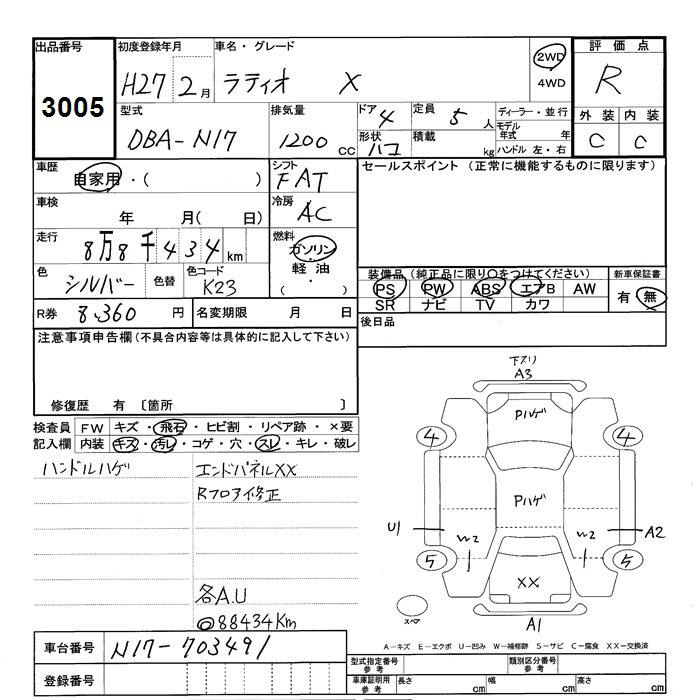 出品番号 3005
初度登録年月 H27 2月
車名・グレード ラティオ X
2WD
4WD
評価点 R
型式 DBA-N17
排気量 1200 cc
ドア 4
形状 ハコ
定員 5 人
積載 kg
ディーラー・並行
モデル年式 年
ハンドル 左・右
外装 内装
C C
車歴 自家用・( )
シフト FAT
セールスポイント (正常に機能するものに限ります)
車検 年 月( 日)
冷房 AC
走行 8万8千434km
燃料 ガソリン
軽油
( ・ )
色 シルバー 色替 色コード K23
装備品 (純正品に限り○をつけてください) 新車保証書
PS PW ABS エアB AW 有・無
SR ナビ TV カワ
R券 8,360 円 名変期限 月 日
後日品
注意事項申告欄 (不具合内容等は具体的に記入して下さい)
修復歴 有 〔箇所 〕
検査員 FW キズ・飛石・ヒビ割・リペア跡・×要
記入欄 内装 キズ・汚レ・コゲ・穴・スレ・キレ・破レ
ハンドルハゲ
エンドパネルXX
Rフロアイ修正
各A.U
@88434Km
下スリ
A3
Pハゲ
4 4
Pハゲ
U1 W2 W2 A2
5 5
XX
スペア
A1
A-キズ E-エクボ U-凹み W-補修跡 S-サビ C-腐食 XX-交換済
車台番号 N17-703491
登録番号
型式指定番号 参考 類別区分番号 参考
車庫証明用 参考 長さ cm 幅 cm 高さ cm